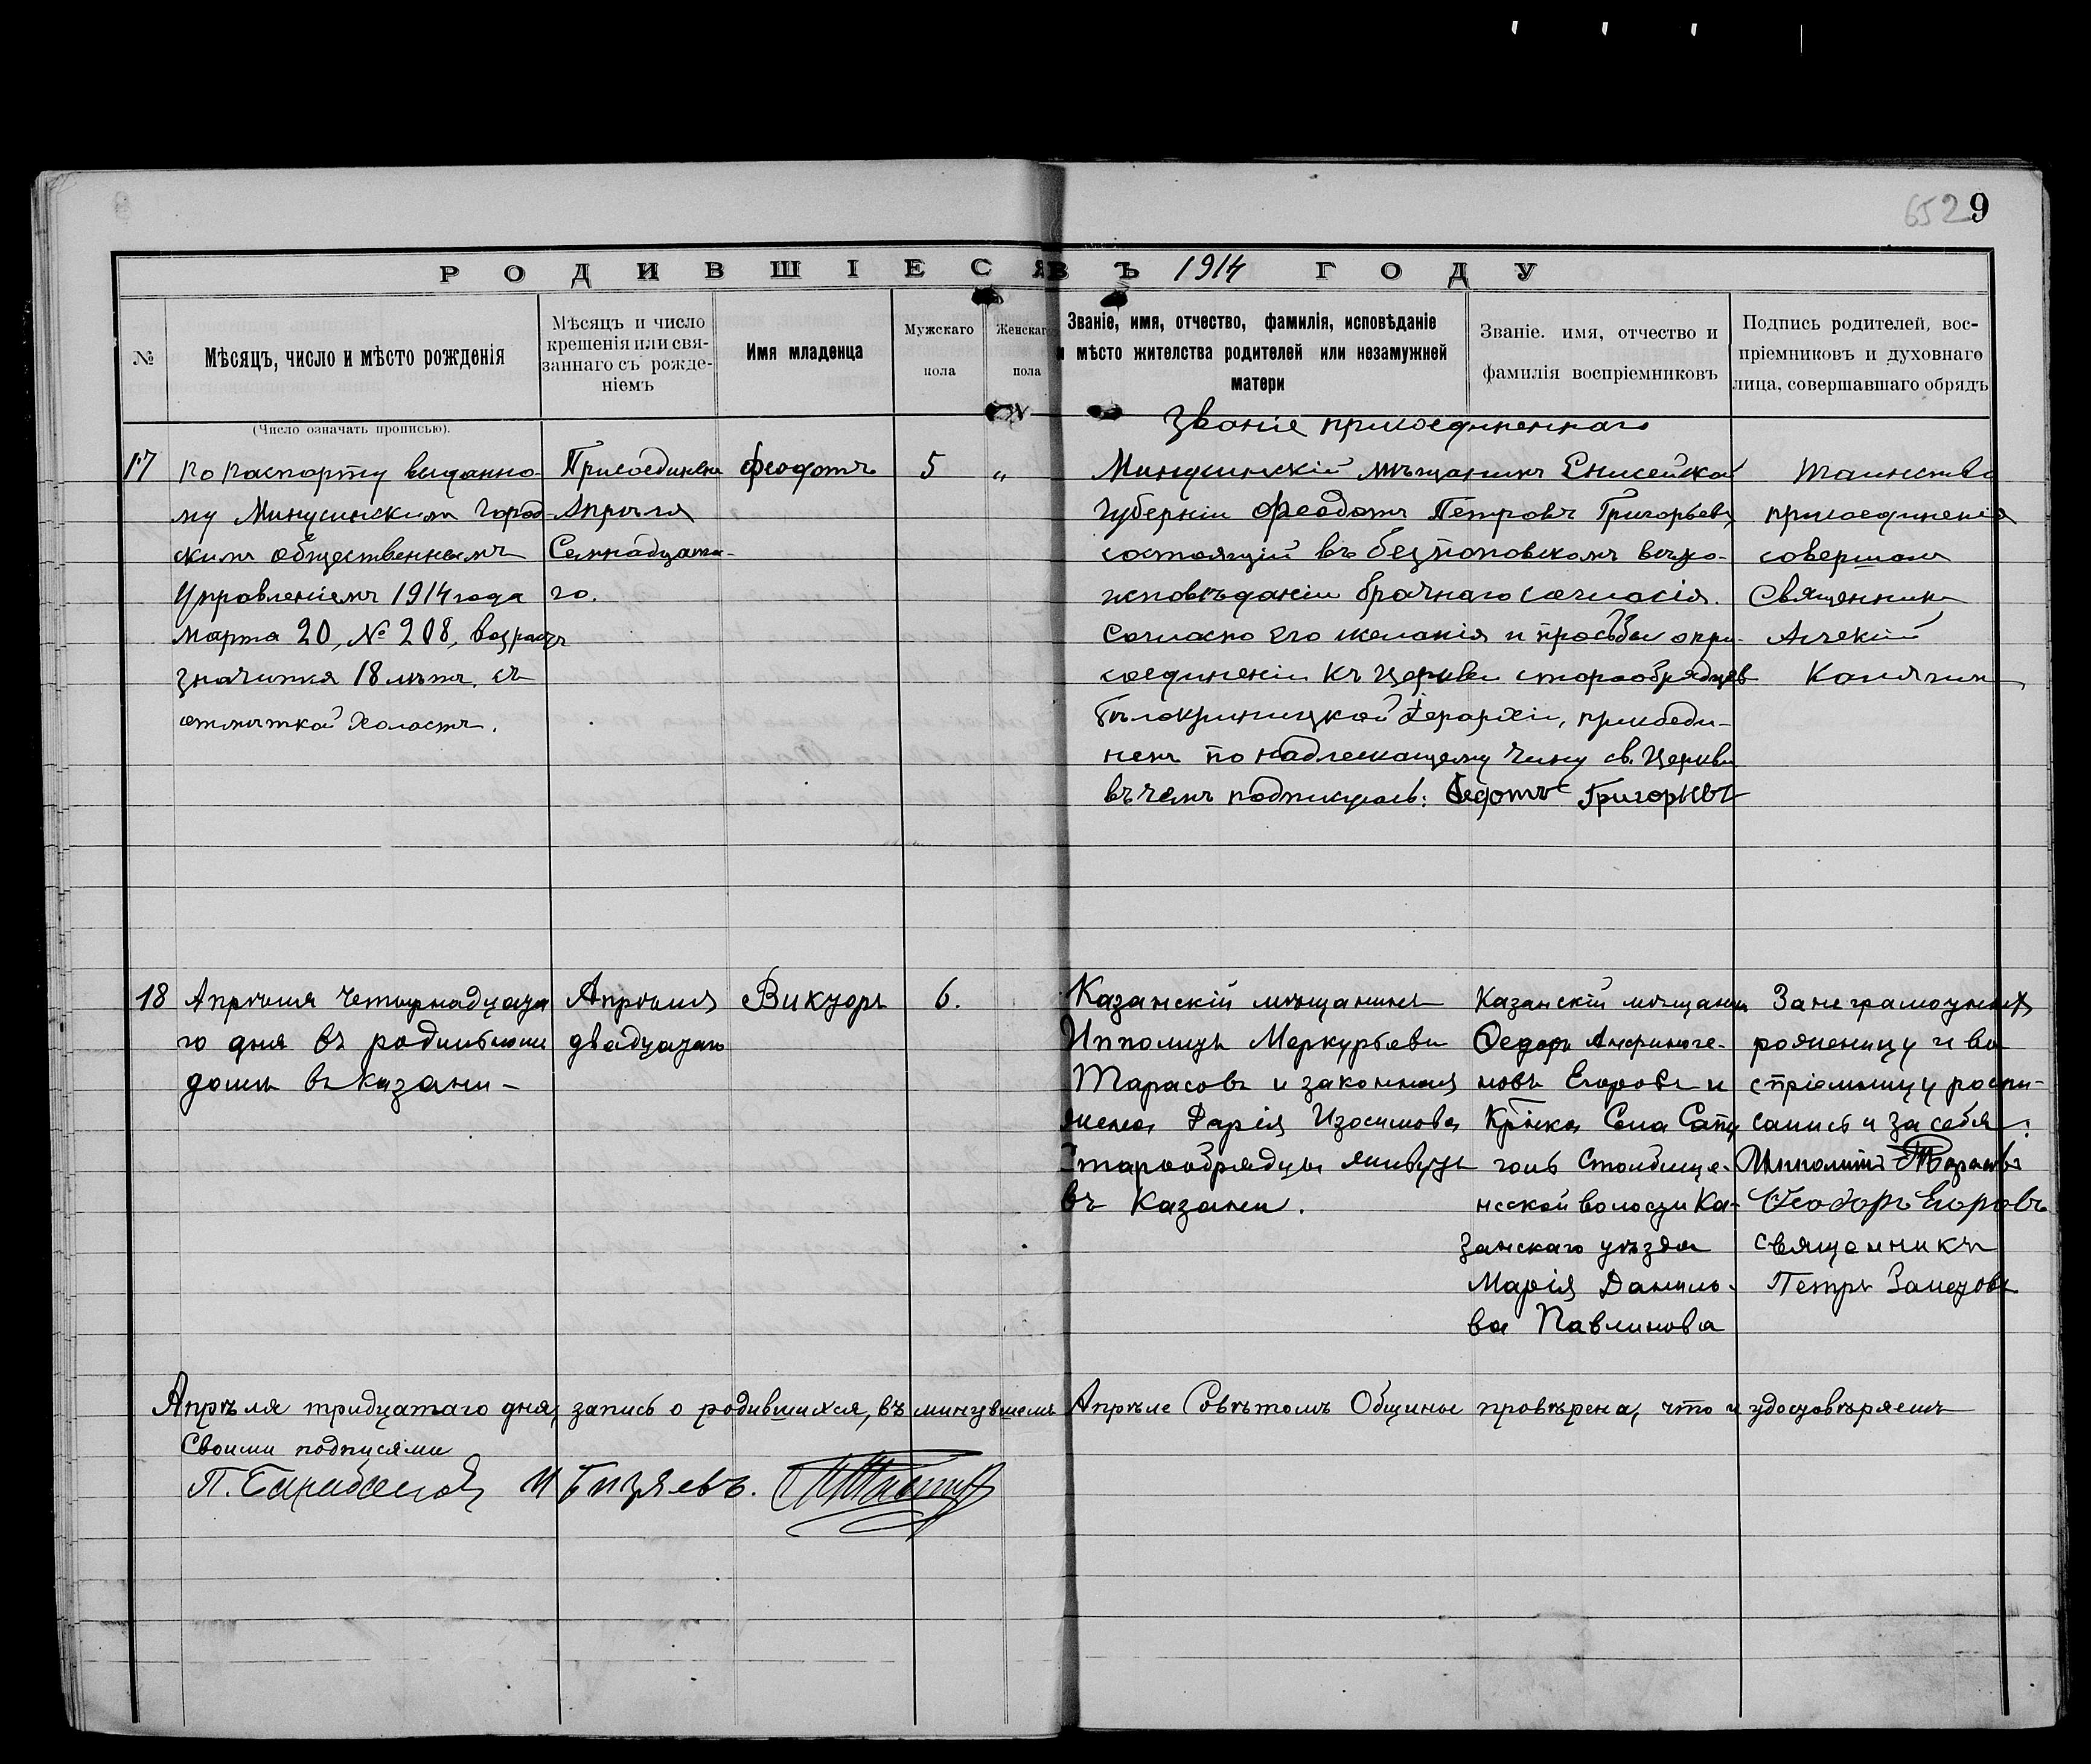 652 9
РОДИВШІЕСЯ ВЪ 1914 ГОДУ
№
Мѣсяцъ, число и мѣсто рожденія
Мѣсяцъ и число
крещенія или свя-
заннаго съ рожде-
ніемъ
Имя младенца
Мужскаго
пола
Женскаго
пола
Званіе, имя, отчество, фамилія, исповѣданіе
и мѣсто жителства родителей или незамужней
матери
Званіе. имя, отчество и
фамилія воспріемниковъ
Подпись родителей, вос-
пріемниковъ и духовнаго
лица, совершавшаго обрядъ
(Число означать прописью).
Званіе присоединеннаго
17
по паспорту выданно-
му Минусинскимъ Город-
скимъ общественнымъ
Управленіемъ 1914 года
марта 20, № 208, возрастъ
значится 18 лѣтъ, съ
отмѣткой холостъ.
Присоединенъ
Апрѣля
Семнадцата-
го.
Феодотъ
5
„
Минусинскій мѣщанинъ Енисейской
губерніи Феодотъ Петровъ Григорьевъ
состоящій въ безпоповскомъ вѣро-
исповѣданіи брачнаго согласія.
Согласно его желанія и просьбы о при-
соединеніи къ Церкви старообрядцев
Бѣлокриницкой Іерархіи, присоеди-
ненъ по надлежащему чину св. Церкви
въ чемъ подписуюсь: Федотъ Григорьевъ
Таинство
присоединенія
совершалъ
Священникъ
Алексій
Калягин
18
Апрѣля четырнадцата
го дня въ родильномъ
домѣ въ Казани-
Апрѣля
двадцатаго
Викторъ
6.
Казанскій мѣщанинъ
Ипполитъ Меркурьевъ
Тарасовъ и законная
жена Дарія Изосимова
Старообрядцы живутъ
въ Казани.
Казанскій мѣщанинъ
Федоръ Анфиноге-
новъ Егоровъ и
Кр͡нка Села Сапу
голь Столбище-
нской волости Ка-
занскаго уѣзда
Марія Данило-
ва Павлинова
За неграмотных
роженицу и во
спріемницу роспи-
сались и за себя:
Ипполитъ Тарасовъ
Феодоръ Егоровъ
священникъ
Петръ Залетовъ
Апрѣля тридцатаго дня, запись о родившихся, въ минувшемъ Апрѣлѣ Совѣтомъ Общины провѣрена, что и удостовѣряемъ
Своими подписями
И Гизяевъ.